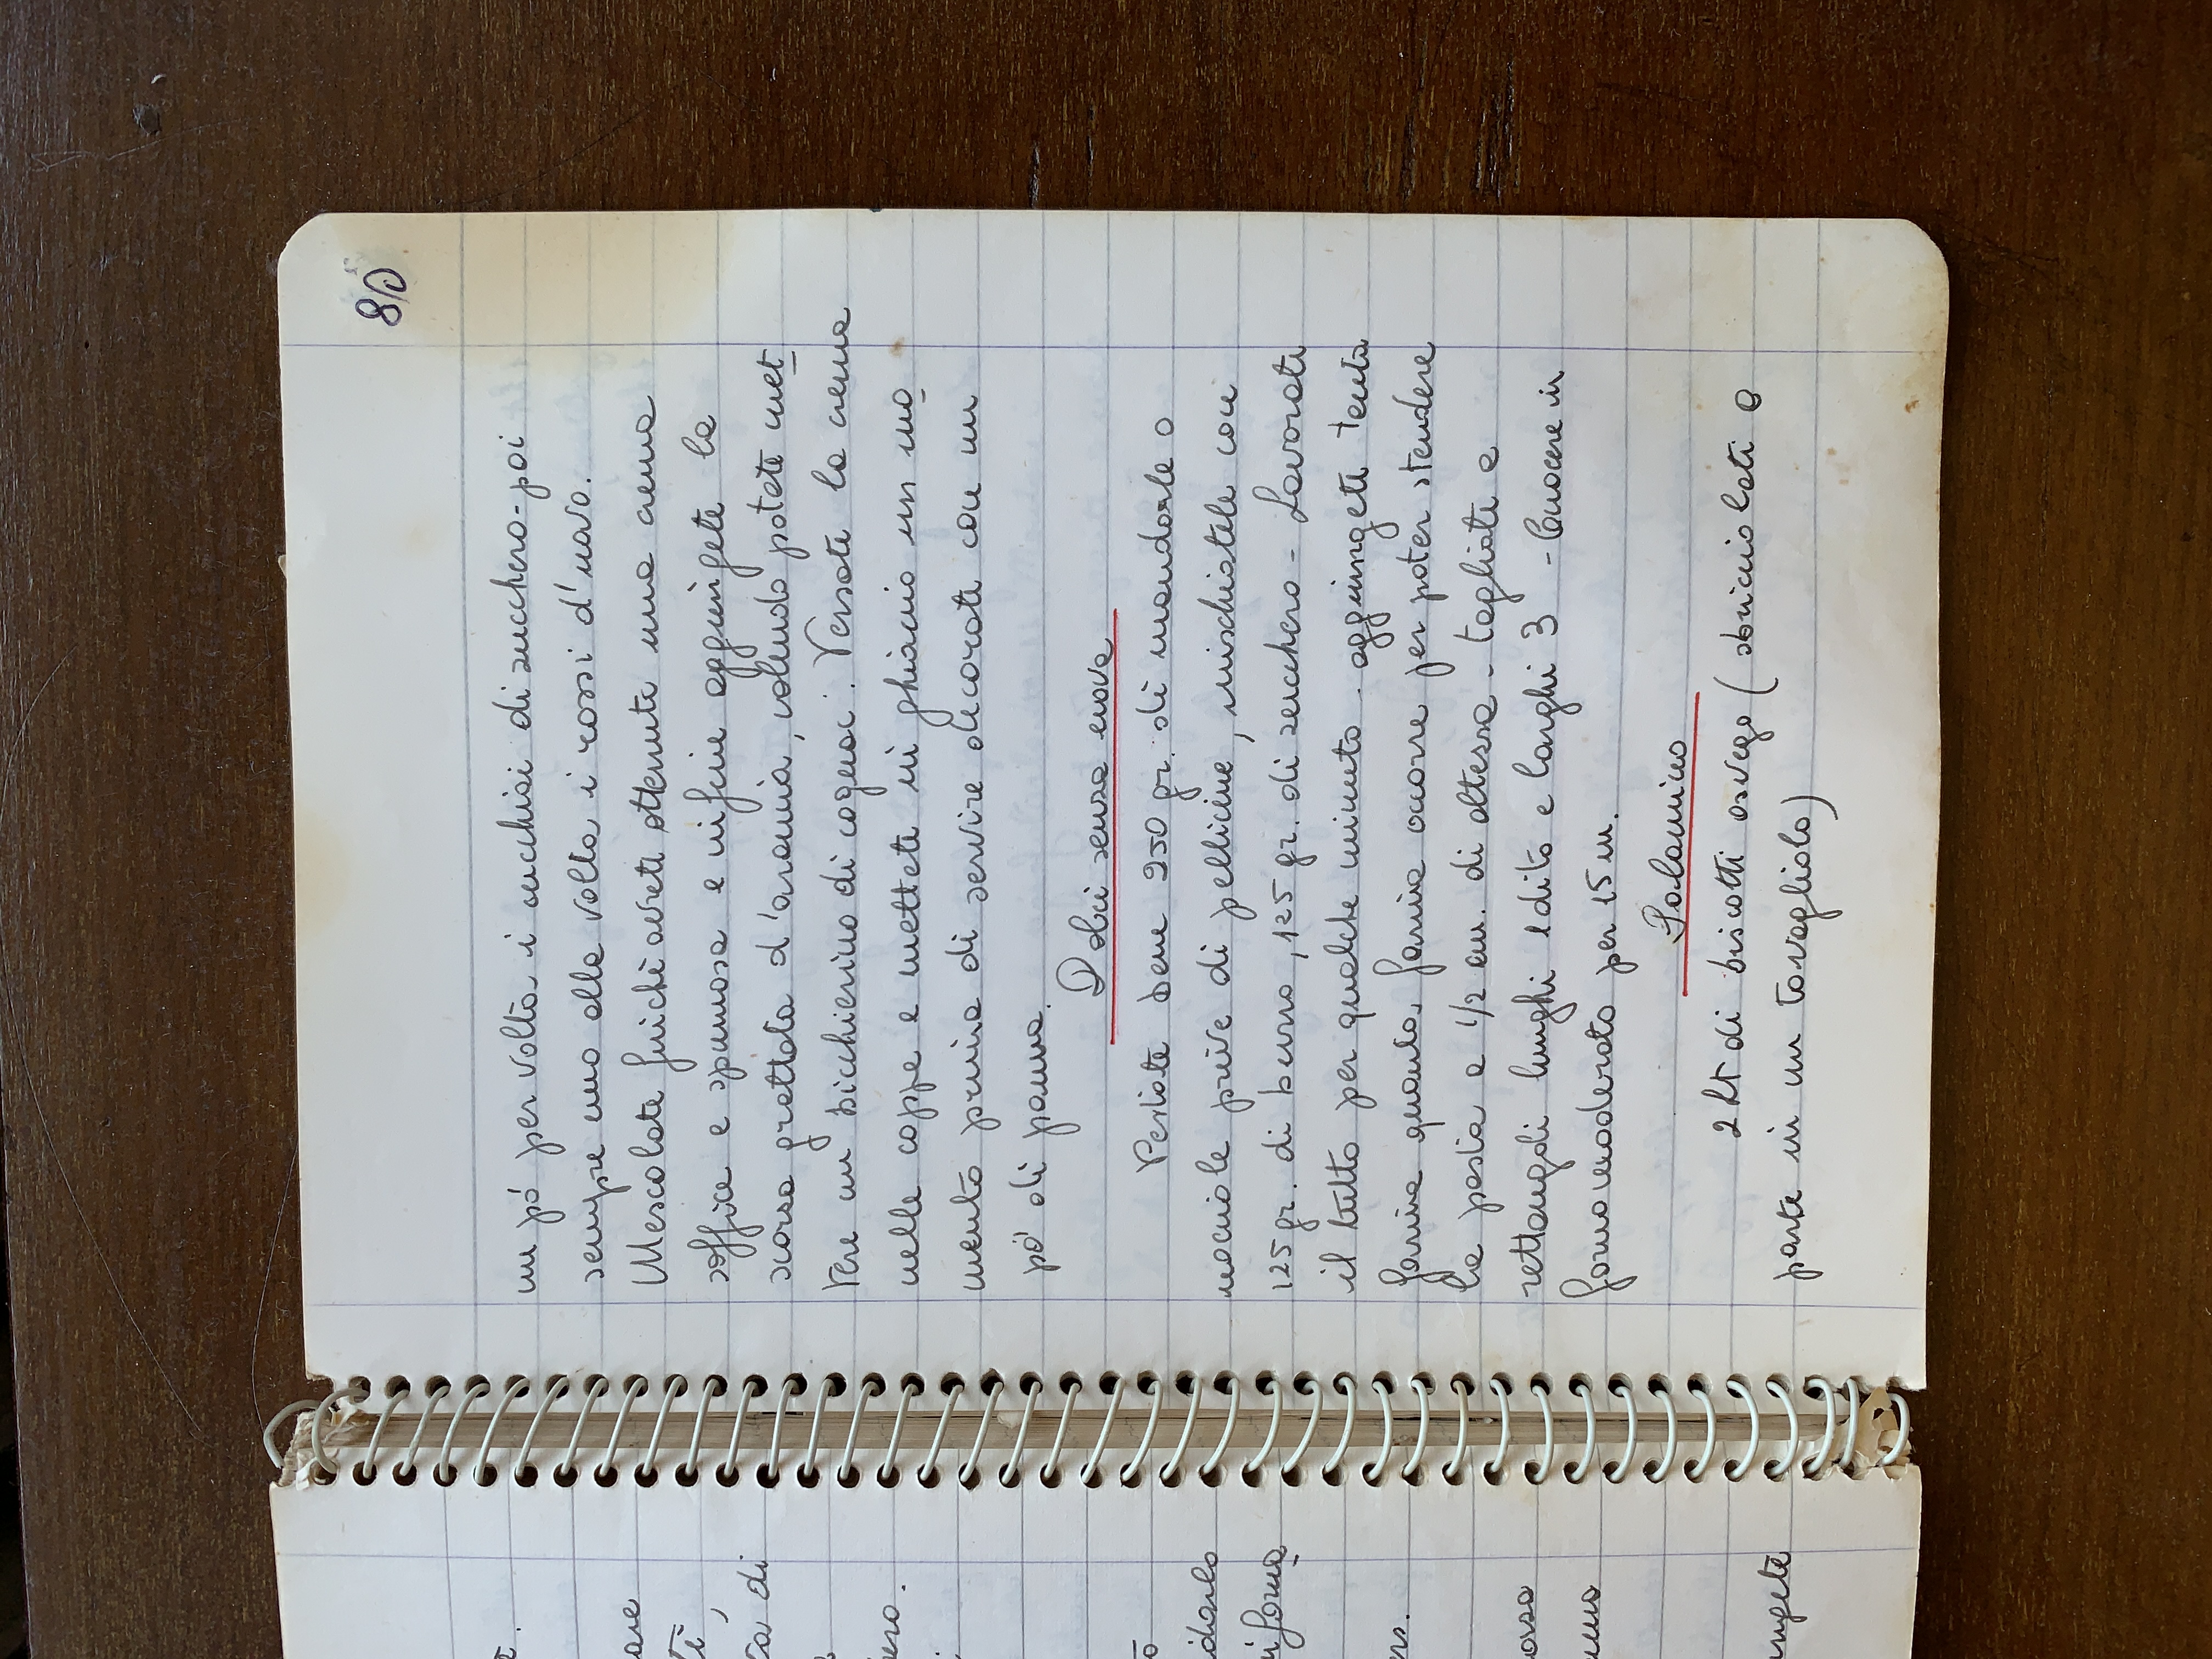 80
un pó per volta i cucchiai di zucchero - poi
sempre uno alla volta i rossi d'uovo.
Mescolate finché avrete ottenuto una crema
soffice e spumosa e infine aggiungete la
scorza grattata d'arancia, volendo potete met
tere un bicchierino di cognac. Versate la crema
nelle coppe e mettete in ghiaccio un mo
mento prima di servire decorate con un
pó di panna.
Dolci senza uova
Pestate bene 250 gr. di mandorle o
nocciole prive di pellicine, mischiatele con
125 gr. di burro, 125 gr. di zucchero - Lavorate
il tutto per qualche minuto - aggiungete tanta
farina quanta farina occorre per poter stendere
la pasta a 1/2 cm. di altezza - tagliate a
rettangoli lunghi 1 dito e larghi 3 - Cuocere in
forno moderato per 15 m.
Salamino
2 ht di biscotti osvego ( sbriciolati a
parte in un tovagliolo)
t.
are
ti,
ta di
ero.
to
idarlo
forma
orza
ungete